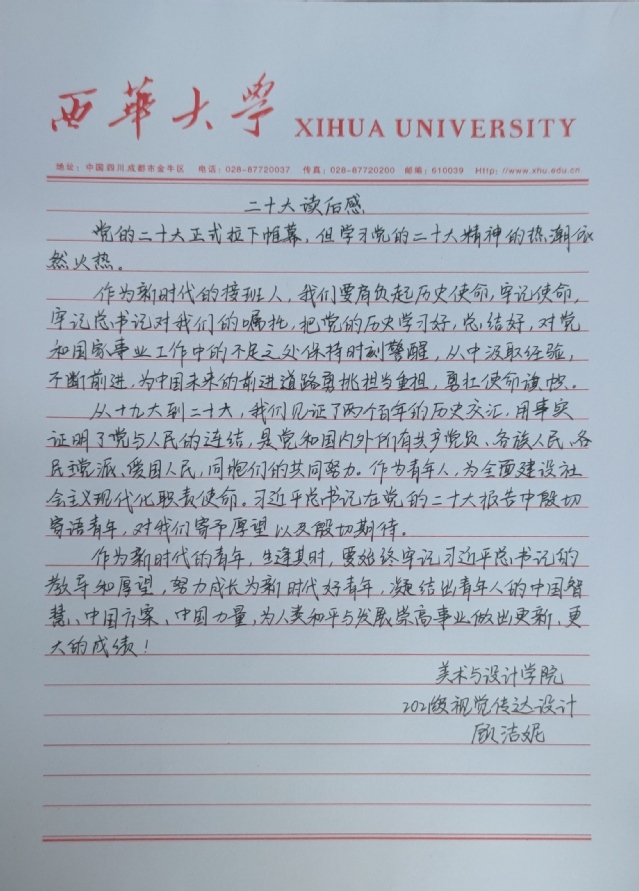 西华大学 XIHUA UNIVERSITY
地址：中国四川成都市金牛区 电话：028-87720037 传真：028-87720200 邮编：610039 Http：//www.xhu.edu.cn
二十大读后感
党的二十大正式拉下帷幕，但学习党的二十大精神的热潮依
然火热。
作为新时代的接班人，我们要肩负起历史使命，牢记使命，
牢记总书记对我们的嘱托，把党的历史学习好，总结好，对党
和国家事业工作中的不足之处保持时刻警醒，从中汲取经验，
不断前进，为中国未来的前进道路勇挑担当重担，勇扛使命旗帜。
从十九大到二十大，我们见证了两个百年的历史交汇，用事实
证明了党与人民的连结，是党和国内外所有共产党员、各族人民、各
民主党派、爱国人民，同胞们的共同努力。作为青年人，为全面建设社
会主义现代化职责使命。习近平总书记在党的二十大报告中殷切
寄语青年，对我们寄予厚望以及殷切期待。
作为新时代的青年，生逢其时，要始终牢记习近平总书记的
教导和厚望，努力成长为新时代好青年，凝结出青年人的中国智
慧、中国方案、中国力量，为人类和平与发展崇高事业做出更新，更
大的成绩！
美术与设计学院
2021级视觉传达设计
顾洁妮